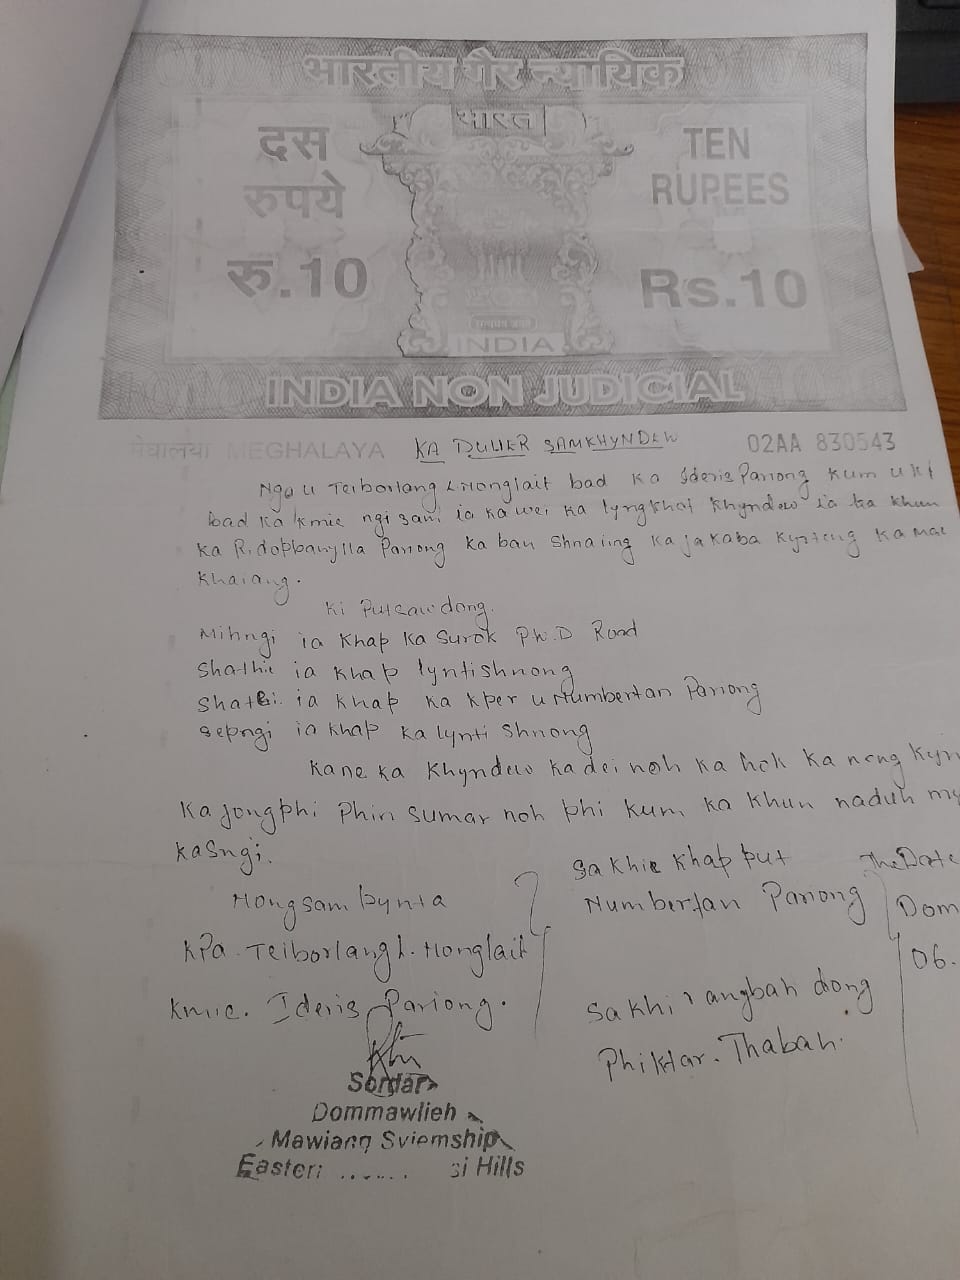 भारतीय गैर न्यायिक
भारत
दस
रुपये
रु.10
TEN
RUPEES
Rs.10
सत्यमेव जयते
INDIA
INDIA NON JUDICIAL
मेघालया MEGHALAYA
KA DULIER SAMKHYNDEW
02AA 830543
Nga u Teiborlang L. Honglait bad Ka Ideris Pariong Kum u Kpa
bad Ka Kmie ngi sam ia Ka wei Ka lyngkhot Khyndew ia ka khun
Ka Ridapbanylla Pariong Ka ban Shnaiing Ka jaka ba Kyrteng Ka Mae
Khaiang.
Ki Putsawdong.
Mihngi ia Khap Ka Surok P.W.D Road
Shathie ia Khap lyntishnong
Shatei ia Khap Ka Kper u Humbertan Pariong
Sepngi ia Khap Ka lynti Shnong
Kane Ka Khyndew Ka dei noh Ka hok Ka nong
Ka jong phi Phin Sumar noh phi Kum Ka Khun naduh
Kasngi.
Sakhie Khappud
Humbertan Pariong
The Date
Dom
06.
Nongsam bynta
Kpa. Teiborlang L. Honglait
Kmie. Ideris Pariong.
Sakhi rangbah dong
Phiktar. Thabah.
Sordar
Dommawlieh
Mawiang Syiemship
Eastern ...... si Hills